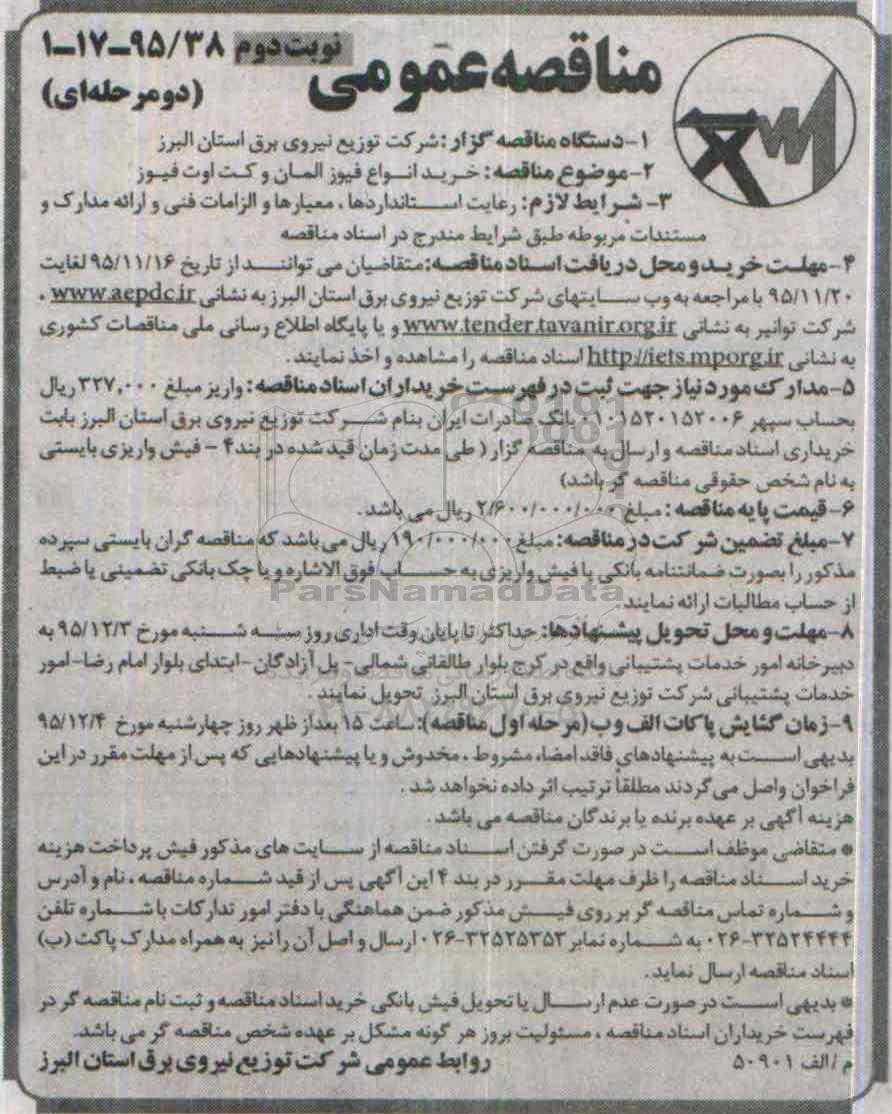 مناقصه عمومی نوبت دوم ۱-۱۷-۹۵/۳۸
(دومرحله‌ای)
۱-دستگاه مناقصه گزار: شرکت توزیع نیروی برق استان البرز
۲-موضوع مناقصه: خرید انواع فیوز المان و کت اوت فیوز
۳- شرایط لازم: رعایت استانداردها، معیارها و الزامات فنی و ارائه مدارک و
مستندات مربوطه طبق شرایط مندرج در اسناد مناقصه
۴-مهلت خرید و محل دریافت اسناد مناقصه: متقاضیان می توانند از تاریخ ۹۵/۱۱/۱۶ لغایت
۹۵/۱۱/۲۰ با مراجعه به وب سایتهای شرکت توزیع نیروی برق استان البرز به نشانی www.aepdc.ir ،
شرکت توانیر به نشانی www.tender.tavanir.org.ir و یا پایگاه اطلاع رسانی ملی مناقصات کشوری
به نشانی http://iets.mporg.ir اسناد مناقصه را مشاهده و اخذ نمایند.
۵-مدارک مورد نیاز جهت ثبت در فهرست خریداران اسناد مناقصه: واریز مبلغ ۳۲۷,۰۰۰ ریال
بحساب سپهر بانک صادرات ایران بنام شرکت توزیع نیروی برق استان البرز بابت
خریداری اسناد مناقصه و ارسال به مناقصه گزار ( طی مدت زمان قید شده در بند۴ - فیش واریزی بایستی
به نام شخص حقوقی مناقصه گر باشد)
۶- قیمت پایه مناقصه: مبلغ ۲/۶۰۰/۰۰۰/۰۰۰ ریال می باشد.
۷-مبلغ تضمین شرکت در مناقصه: مبلغ ۱۹۰/۰۰۰/۰۰۰ ریال می باشد که مناقصه گران بایستی سپرده
مذکور را بصورت ضمانتنامه بانکی یا فیش واریزی به حساب فوق الاشاره و یا چک بانکی تضمینی یا ضبط
از حساب مطالبات ارائه نمایند.
ParsNamadData
۸-مهلت و محل تحویل پیشنهادها: حداکثر تا پایان وقت اداری روز سه شنبه مورخ ۹۵/۱۲/۳ به
دبیرخانه امور خدمات پشتیبانی واقع در کرج بلوار طالقانی شمالی- پل آزادگان -ابتدای بلوار امام رضا-امور
خدمات پشتیبانی شرکت توزیع نیروی برق استان البرز تحویل نمایند.
۹-زمان گشایش پاکات الف و ب(مرحله اول مناقصه): ساعت ۱۵ بعداز ظهر روز چهارشنبه مورخ ۹۵/۱۲/۴
بدیهی است به پیشنهادهای فاقد امضاء، مشروط ، مخدوش و یا پیشنهادهایی که پس از مهلت مقرر در این
فراخوان واصل می گردند مطلقاً ترتیب اثر داده نخواهد شد .
هزینه آگهی بر عهده برنده یا برندگان مناقصه می باشد .
* متقاضی موظف است در صورت گرفتن اسناد مناقصه از سایت های مذکور فیش پرداخت هزینه
خرید اسناد مناقصه را ظرف مهلت مقرر در بند ۴ این آگهی پس از قید شماره مناقصه ، نام و آدرس
و شماره تماس مناقصه گر بر روی فیش مذکور ضمن هماهنگی با دفتر امور تدارکات با شماره تلفن
۰۲۶-۳۲۵۲۴۴۴۴ به شماره نمابر ۰۲۶-۳۲۵۲۵۳۵۳ ارسال و اصل آن را نیز به همراه مدارک پاکت (ب)
اسناد مناقصه ارسال نماید .
* بدیهی است در صورت عدم ارسال یا تحویل فیش بانکی خرید اسناد مناقصه و ثبت نام مناقصه گر در
فهرست خریداران اسناد مناقصه ، مسئولیت بروز هر گونه مشکل بر عهده شخص مناقصه گر می باشد.
م / الف ۵۰۹۰۱ روابط عمومی شرکت توزیع نیروی برق استان البرز